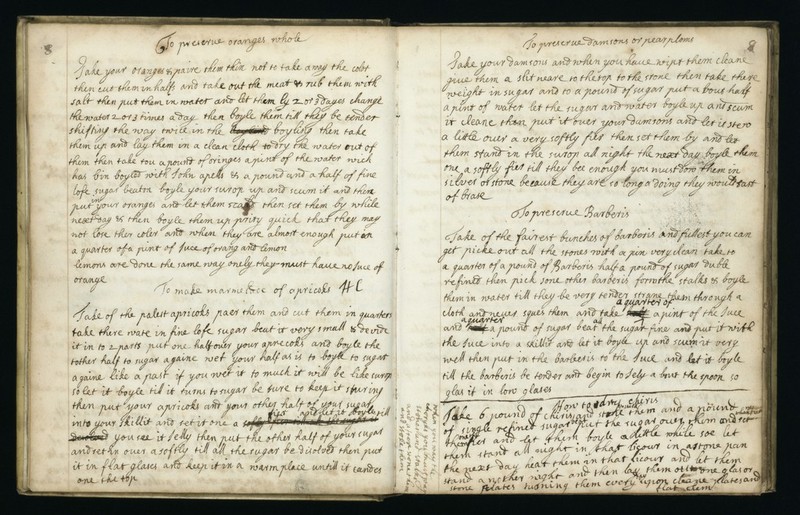 8
To preserve oranges whole
Take your oranges & paire them thin not to take away the colot
then cut them in half and take out the meat & rub them with
salt then put them in water and let them ly 2 or 3 dayes change
the water 2 or 3 times a day then boyle them till they be tender
shifting the way twice in the boyling then take
them up and lay them in a clean cloth to dry the water out of
them then take to a pound of oringes a pint of the water wich
has bin boyled with John apells & a pound and a half of fine
lofe sugar beaten boyle your surop up and scum it and then
put in your oranges and let them scald then set them by while
next day & then boyle them up prity quick that they may
not lose ther coler and when they are almost enough put in
a quarter of a pint of Juce of orang and lemon
lemons are done the same way onely they must have no Juce of
orange
To make marmelece of apricoks HC
Take of the palest apricoks paer them and cut them in quarters
take there wate in fine lofe sugar beat it very small & devide
it in to 2 parts put one half over your aprecoks and boyle the
tother half to sugar againe wet your half as is to boyle to sugar
againe like a past if you wet it to much it will be like surop
so let it boyle till it turns to sugar be sure to keep it sturing
then put your apricoks and your other half of your sugar
into your skillit and set it one a
fier and let it boyle till
you see it Jelly then put the other half of your sugar
and set it over a softly till all the sugar be disolved then put
it in flat glases and keep it in a warm place until it candes
one the top
8
To preserve damsons or pear ploms
Take your damsons and when you have wipt them cleane
give them a slit neare to the top to the stone then take there
weight in sugar and to a pound of sugar put a bout half
a pint of water let the sugar and water boyle up and scum
it cleane then put it over your damsons and let it stew
a little over a very softly fier then set them by and let
them stand in the surop all night the next day boyle them
one a softly fier till they bee enough you must doo them in
silver or stone because they are so long a doing they would tast
of brase
To preserve Barberis
Take of the fairest bunches of barberis and fullest you can
get picke out all the stones with a pin very clean take to
a quarter of a pound of Barberis half a pound of sugar duble
refined then pick some other barberis from the stalks & boyle
them in water till they be very tender strane them through a
a quarter of
cloth and never sques them and take a pint of the Juce
a quarter
and a pound of sugar beat the sugar fine and put it with
the Juce into a skillit and let it boyle up and scum it very
well then put in the barberis to the Juce and let it boyle
till the barberis be tender and begin to Jely a bout the spoon so
glas it in low glases
How to dry chiris
Take 6 pound of chiris and stone them and a pound
of single refined sugar put the sugar over them and set
and let them boyle a little while soe let
them stand all night in that licour in a stone pan
the next day heat them in that licour and let them
stand another night and then lay them one glas or
stone plates turning them every upon cleane plates and